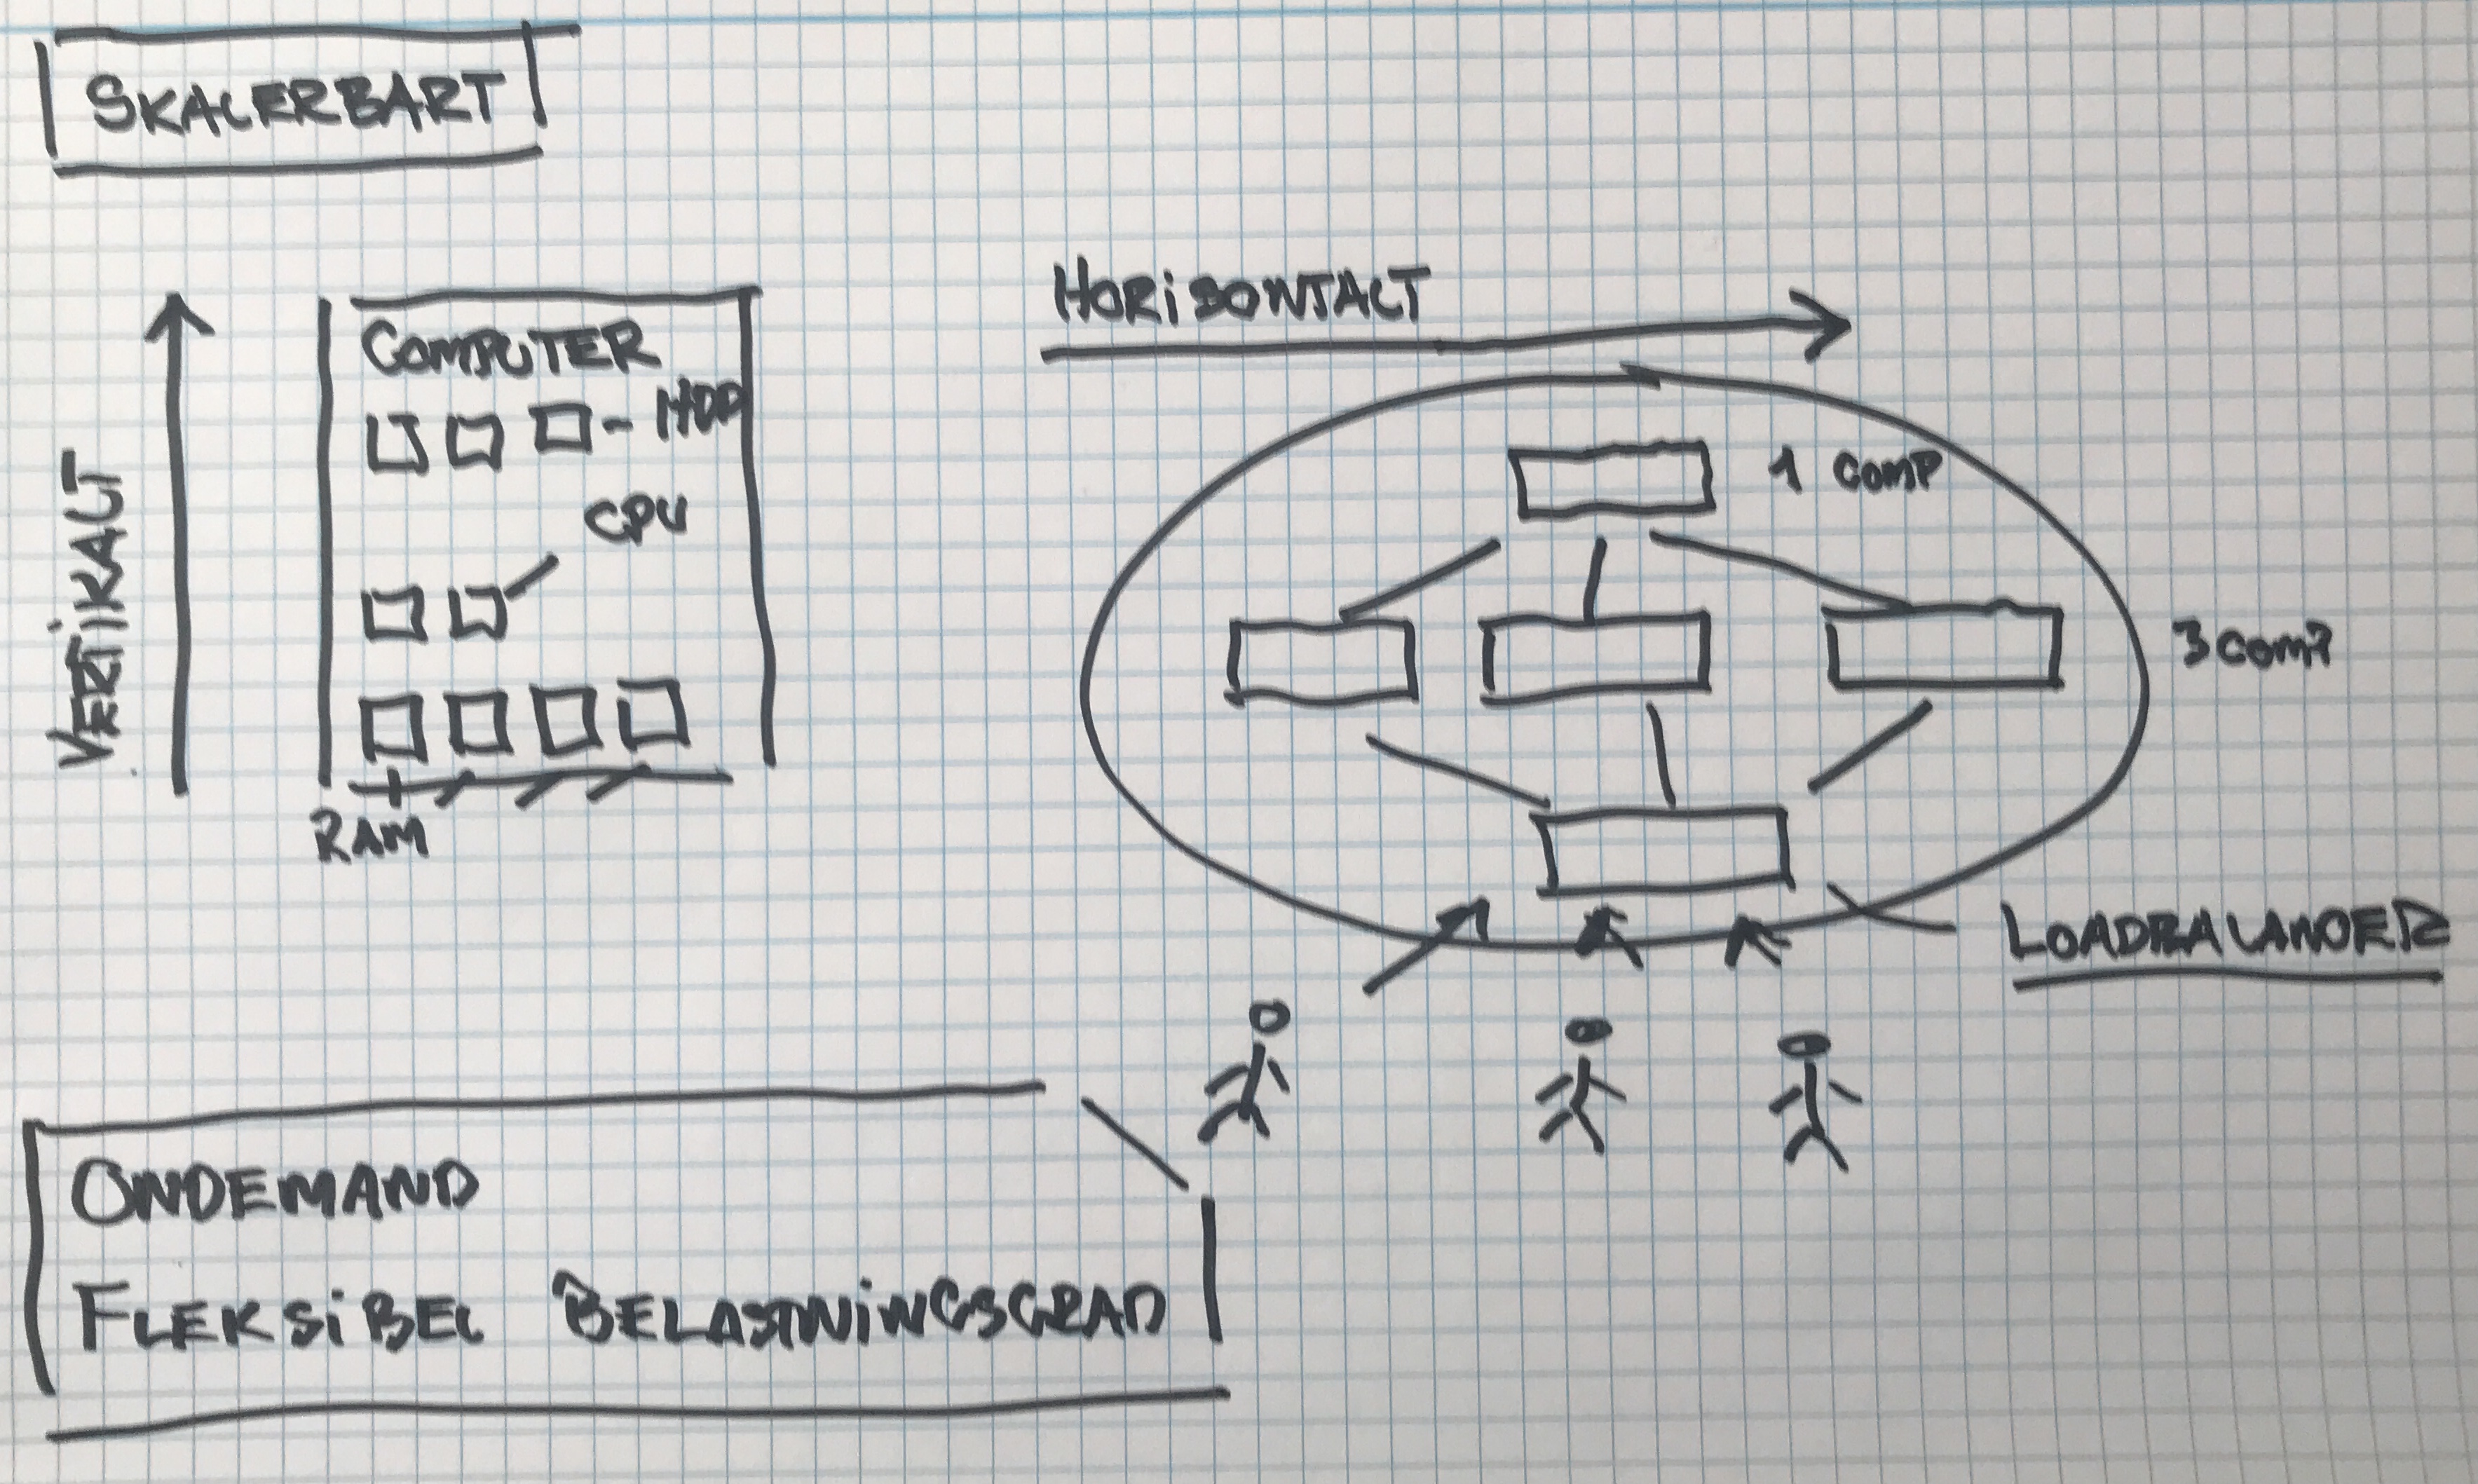 SKALERBART
VERTIKALT
COMPUTER
- HDD
CPU
RAM
HORISONTALT
1 COMP
3 COMP
LOADBALANCER
ONDEMAND
FLEKSIBEL BELASTNINGSGRAD